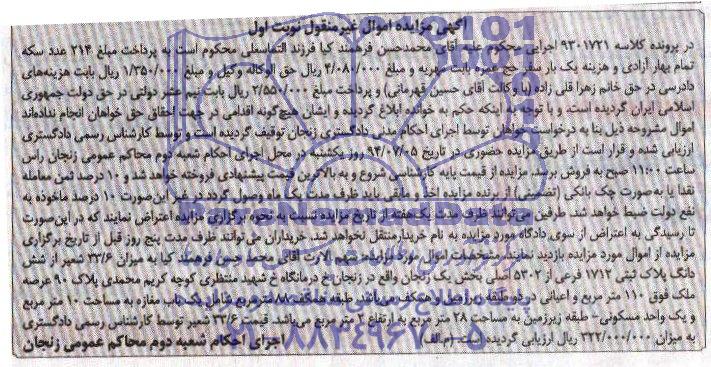 آگهی مزایده اموال غیرمنقول نوبت اول
در پرونده کلاسه ۹۳۰۱۷۲۱ اجرایی محکوم علیه آقای محمدحسن فرهمند کیا فرزند التفاسعلی محکوم است به پرداخت مبلغ ۲۱۴ عدد سکه
تمام بهار آزادی و هزینه یک بار سفر حج عمره بابت مهریه و مبلغ ۴/۰۸۰/۰۰۰ ریال حق الوکاله وکیل و مبلغ ۱/۳۵۰/۰۰۰ ریال بابت هزینه‌های
دادرسی در حق خانم زهرا قلی زاده (با وکالت آقای حسین قهرمانی) و پرداخت مبلغ ۲/۵۵۰/۰۰۰ ریال بابت نیم عشر دولتی در حق دولت جمهوری
اسلامی ایران گردیده است. و با توجه به اینکه حکم به خوانده ابلاغ گردیده و ایشان هیچ‌گونه اقدامی در جهت احقاق حق خواهان انجام نداده‌اند
اموال مشروحه ذیل بنا به درخواست خواهان توسط اجرای احکام مدنی دادگستری زنجان توقیف گردیده است و توسط کارشناس رسمی دادگستری
ارزیابی شده و قرار است از طریق مزایده حضوری در تاریخ ۹۴/۰۷/۰۵ روز یکشنبه در محل اجرای احکام شعبه دوم محاکم عمومی زنجان راس
ساعت ۱۱:۰۰ صبح به فروش برسد. مزایده از قیمت پایه کارشناسی شروع و به بالاترین قیمت پیشنهادی فروخته خواهد شد و ۱۰ درصد ثمن معامله
نقدا یا به‌صورت چک بانکی (تضمینی) از برنده مزایده اخذ و مابقی باید ظرف مدت یک ماه وصول گردد در غیر این‌صورت ۱۰ درصد ماخوذه به
نفع دولت ضبط خواهد شد. طرفین می‌توانند ظرف مدت یک‌هفته از تاریخ مزایده نسبت به نحوه برگزاری مزایده اعتراض نمایند که در این‌صورت
تا رسیدگی به اعتراض از سوی دادگاه مورد مزایده به نام خریدار منتقل نخواهد شد. خریداران می‌توانند ظرف مدت پنج روز قبل از تاریخ برگزاری
مزایده از اموال مورد مزایده بازدید نمایند. مشخصات اموال مورد مزایده: سهم الارث آقای محمد حسن فرهمند کیا به میزان ۳۳/۶ شعیر از شش
دانگ پلاک ثبتی ۱۷۱۲ فرعی از ۵۳۰۲ اصلی بخش یک زنجان واقع در زنجان خ درمانگاه خ شهید منتظری کوچه کریم محمدی پلاک ۹۰ عرصه
ملک فوق ۱۱۰ متر مربع و اعیانی در دو طبقه زیرزمین و همکف می‌باشد. طبقه همکف ۸۸ متر مربع شامل یک باب مغازه به مساحت ۱۰ متر مربع
و یک واحد مسکونی- طبقه زیرزمین به مساحت ۲۸ متر مربع به ارتفاع ۲ متر مربع می‌باشد. قیمت ۳۳/۶ شعیر توسط کارشناس رسمی دادگستری
به میزان ۳۲۲/۰۰۰/۰۰۰ ریال ارزیابی گردیده است. (م.الف) اجرای احکام شعبه دوم محاکم عمومی زنجان
۰۲۱-۸۸۳۴۹۶۷۰-۵